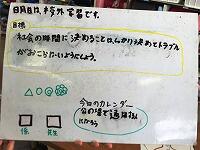 日月日は、校外学習です。
目標
社会の時間に決めることは、しっかり決めてトラブル
がおこらないようにしよう。
今日のカレンダー
係
先生